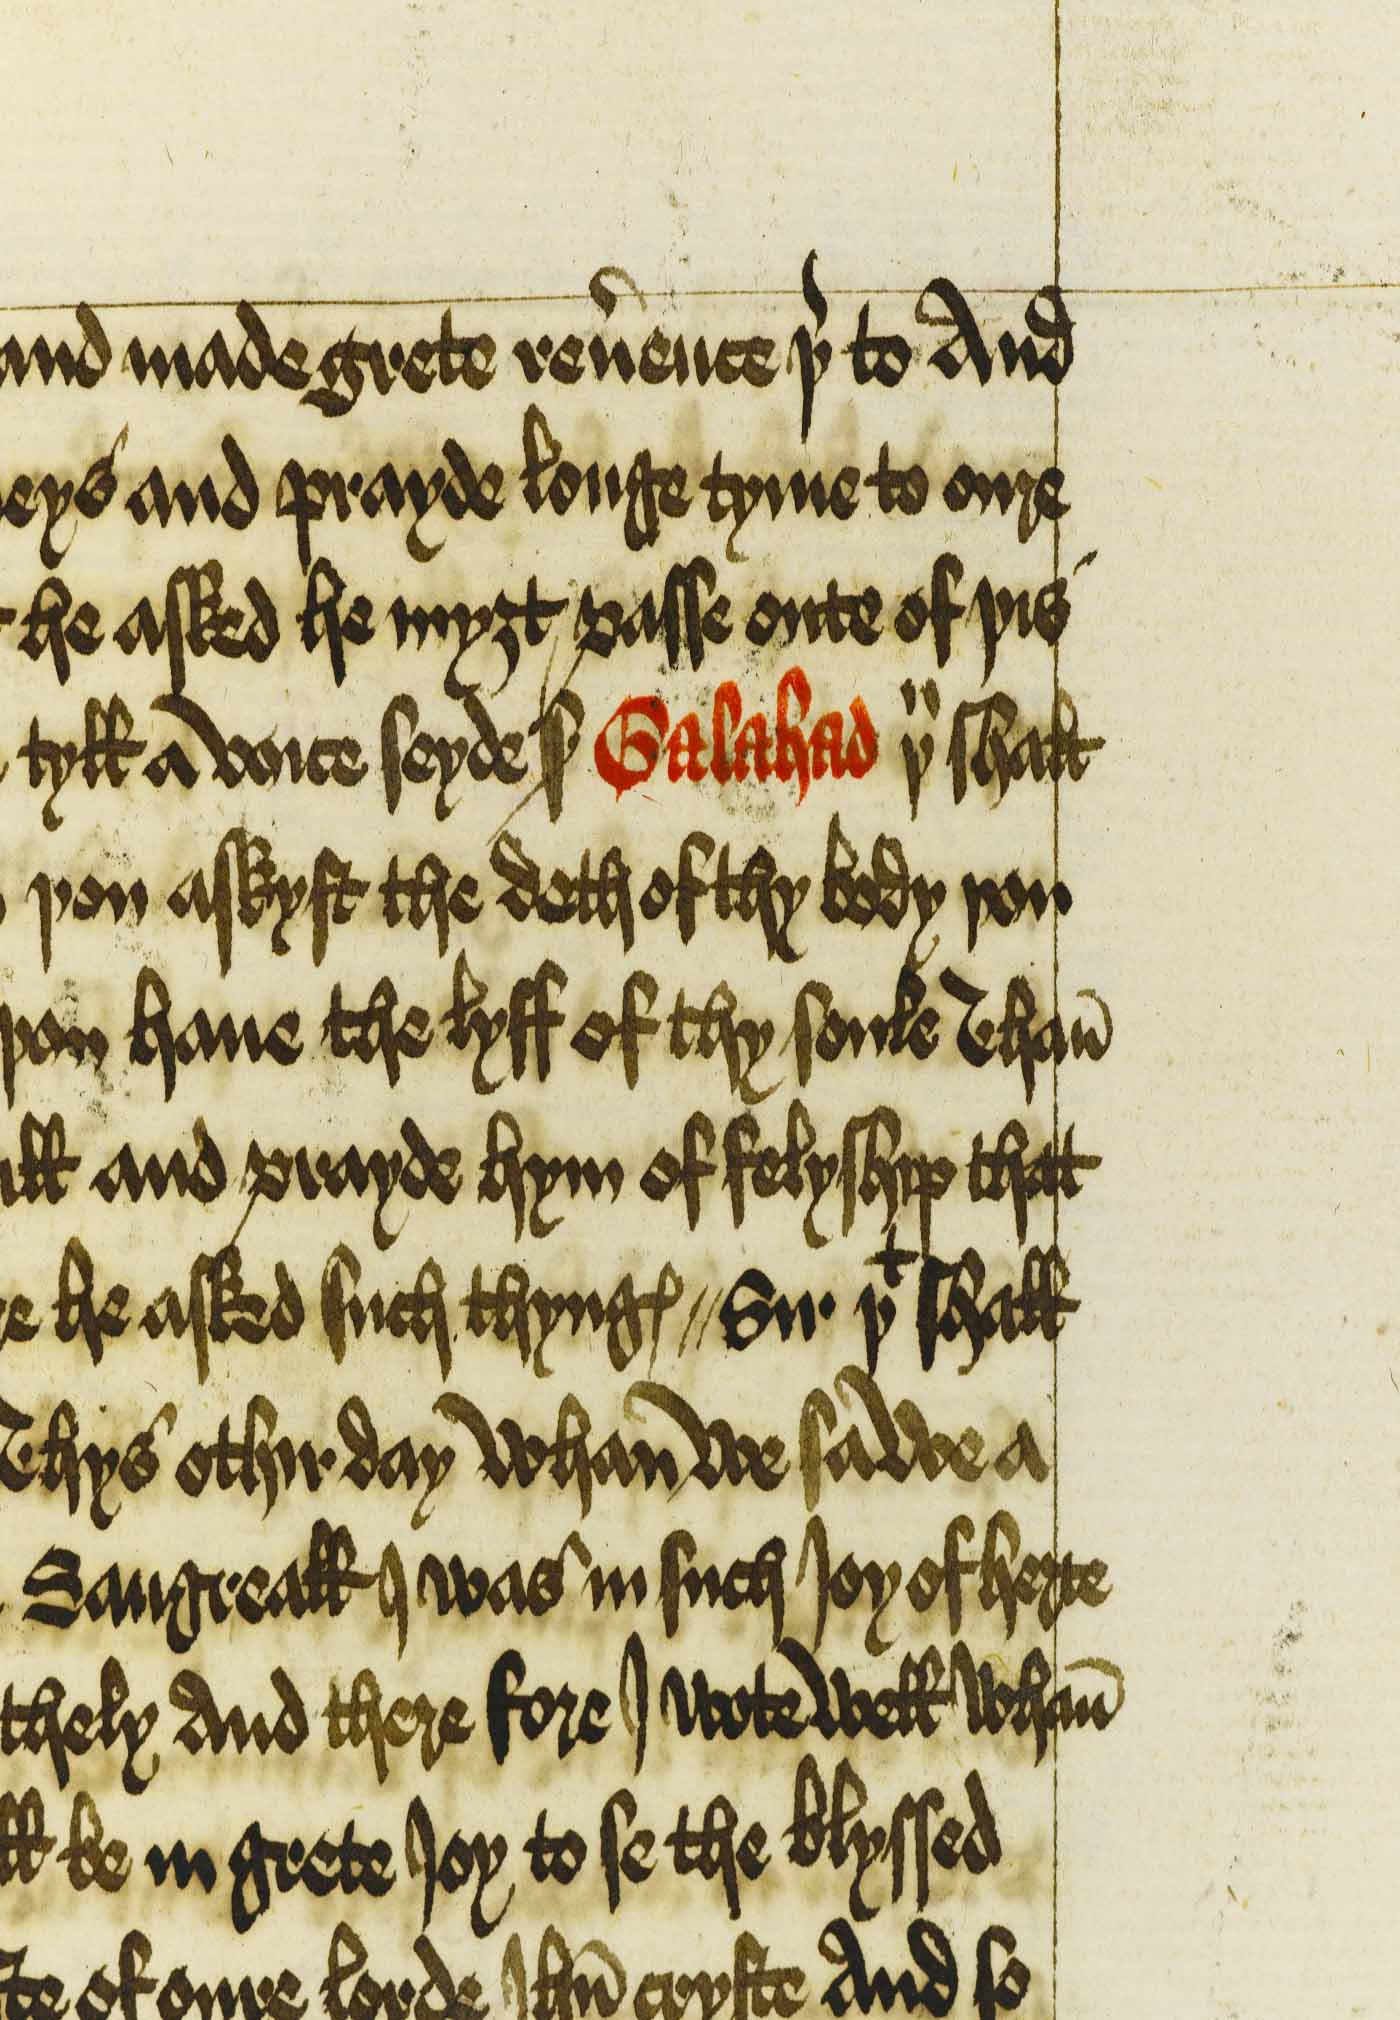 and made grete reu̾ence þ̾ to And
eys and prayde longe tyme to oure
he asked he myȝt passe oute of þis
tyll a voice seyde sˀ Galahad þᵘ shalt
þou askyst the deth of thy body þou
þou haue the lyff of thy soule Than̄
and prayde hym of felyshyp that
he asked such thyngꝭ // Sir þᵗ shall
Thys othir day whan̄ we sawe a
Sangreall I was in such Joy of herte
thely And there fore I wote well whan̄
ll be in grete Joy to se the blyssed
te of oure lorde Jhū cryste And so